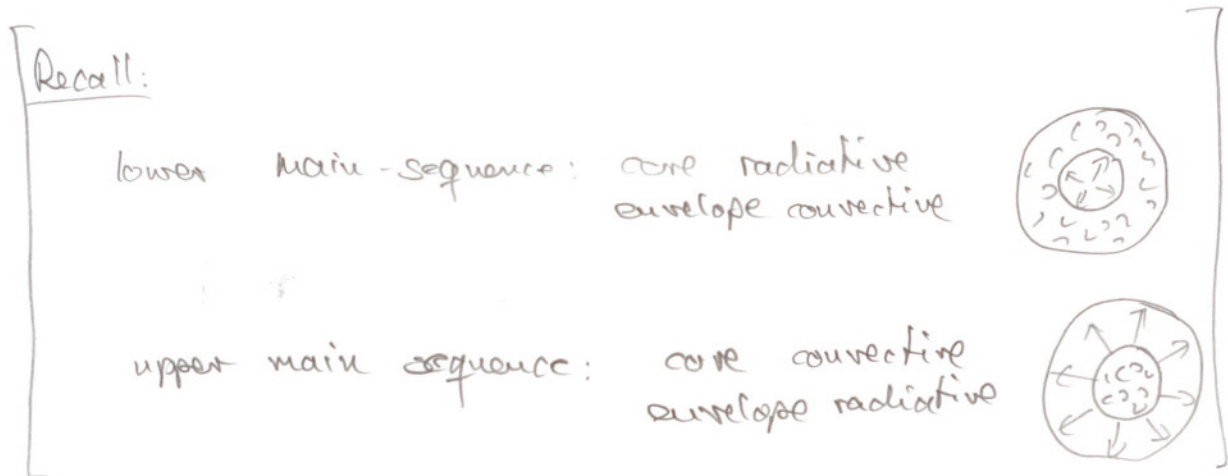 Recall:
lower main-sequence: core radiative
envelope convective
upper main sequence: core convective
envelope radiative